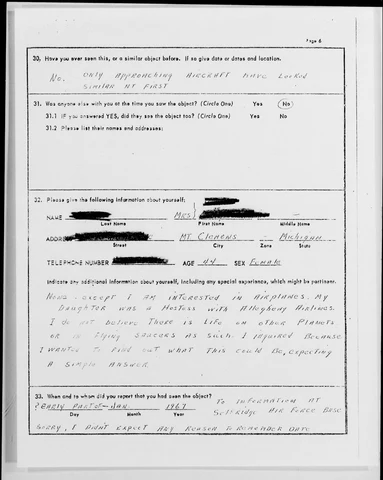 Page 6
30. Have you ever seen this, or a similar object before. If so give date or dates and location.
No. ONLY APPROACHING AIRCRAFT HAVE LOOKED
SIMILAR AT FIRST
31. Was anyone else with you at the time you saw the object? (Circle One) Yes No
31.1 IF you answered YES, did they see the object too? (Circle One) Yes No
31.2 Please list their names and addresses:
32. Please give the following information about yourself:
NAME MRS
Last Name First Name Middle Name
ADDRESS MT CLEMENS MICHIGAN
Street City Zone State
TELEPHONE NUMBER AGE 44 SEX FEMALE
Indicate any additional information about yourself, including any special experience, which might be pertinent.
NONE EXCEPT I AM INTERESTED IN AIRPLANES. MY
DAUGHTER WAS A HOSTESS WITH ALLEGHENY AIRLINES.
I DO NOT BELIEVE THERE IS LIFE ON OTHER PLANETS
OR IN FLYING SAUCERS AS SUCH. I INQUIRED BECAUSE
I WANTED TO FIND OUT WHAT THIS COULD BE, EXPECTING
A SIMPLE ANSWER
33. When and to whom did you report that you had seen the object?
? EARLY PART OF - JAN. 1967 TO INFORMATION AT
Day Month Year SELFRIDGE AIR FORCE BASE
SORRY, I DIDN'T EXPECT ANY REASON TO REMEMBER DATE